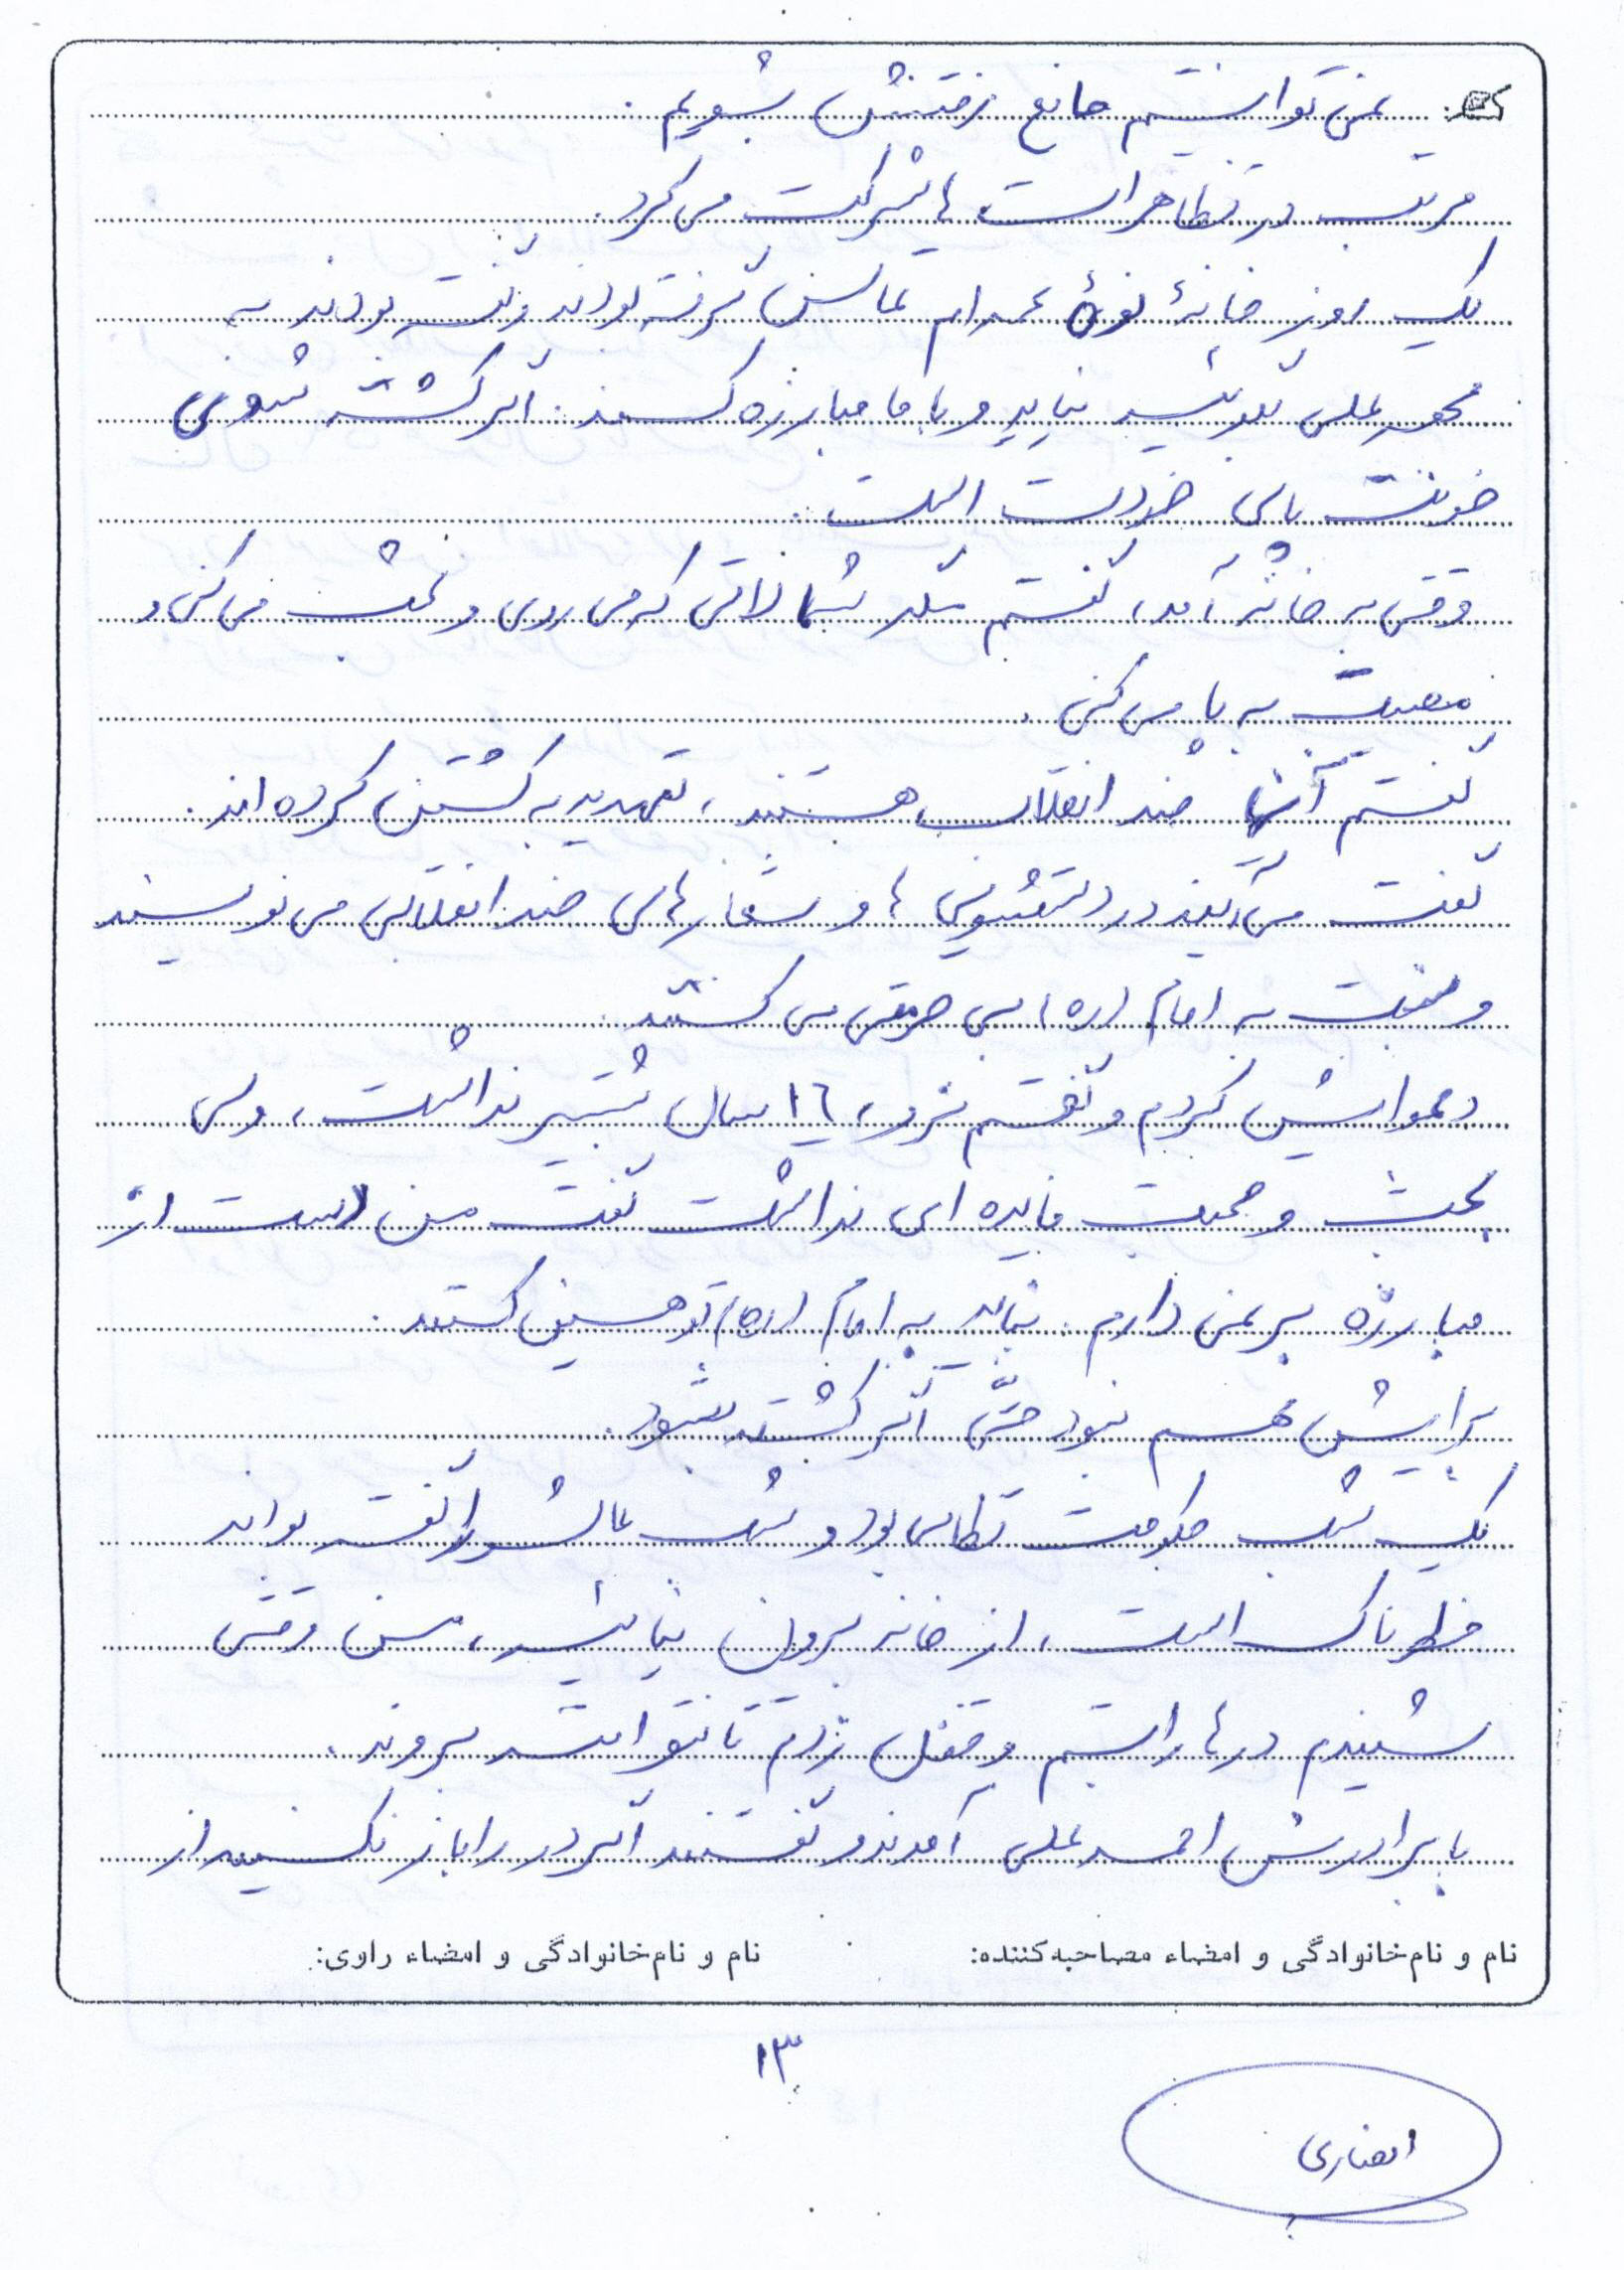 نمی توانستیم مانع رفتنش بشویم.
مرتب در تظاهرات ها شرکت می کرد.
یک روز خانۀ نوۀ عمه ام تماس گرفته بودند و گفته بودند به
محمد علی بگوئید نیاید و با ما مبارزه کند. اگر کشته شوی
خونت پای خودت است.
وقتی به خانه آمد، گفتم مگر شما لاتی که می روی و بحث می کنی و
مصیبت به پا می کنی.
گفتم آنها ضد انقلاب هستند، تهدید به کشتن کرده اند.
گفت می آیند در دستشویی ها و شعارهای ضد انقلابی می نویسند
و نسبت به امام (ره) بی حرمتی می کنند.
دعوایش کردم و گفتم نرو، ١٦ سال بیشتر نداشت، ولی
بحث و صحبت فایده ای نداشت گفت من دست از
مبارزه بر نمی دارم. نباید به امام (ره) توهین کنند.
برایش مهم نبود حتّی اگر کشته بشود.
یک شب حکومت نظامی بود و شب عاشورا گفته بودند
خطرناک است، از خانه بیرون نیائید، من وقتی
شنیدم درها را بستم و قفل زدم تا نتوانند بروند.
با برادرش احمد علی آمدند و گفتند اگر در را باز نکنید از
نام و نام‌خانوادگی و امضاء مصاحبه‌کننده: نام و نام‌خانوادگی و امضاء راوی:
١٣
انصاری